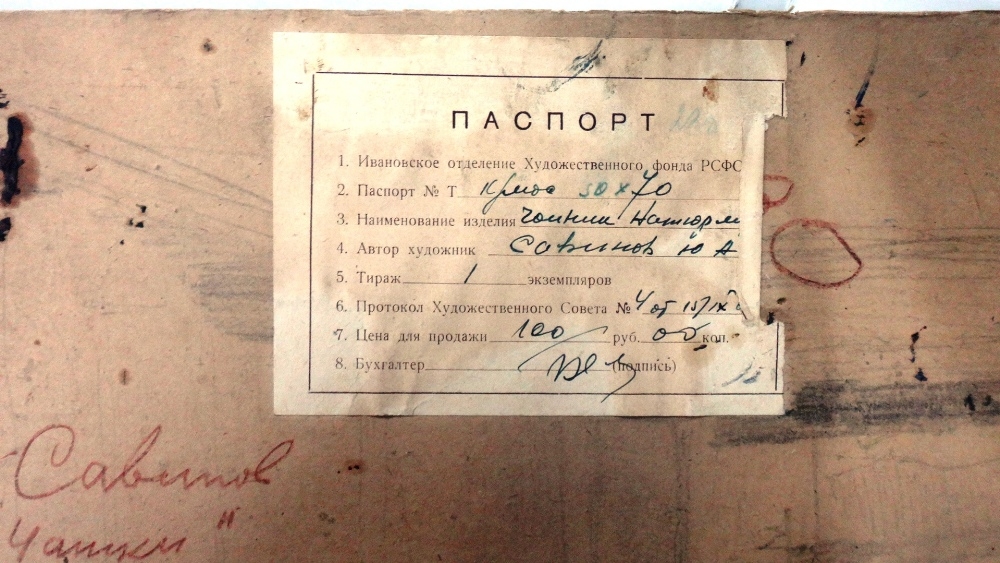 ПАСПОРТ
1. Ивановское отделение Художественного фонда РСФС
2. Паспорт № Т 50 х 70
3. Наименование изделия Натюрм
4. Автор художник Савинов Ю А
5. Тираж 1 экземпляров
6. Протокол Художественного Совета № 4 от 15/IX
7. Цена для продажи 100 руб. 00 коп.
8. Бухгалтер (подпись)
Савинов
Чашки"